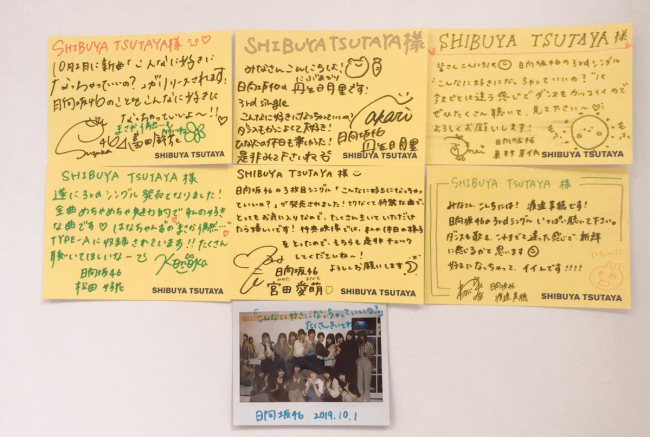 SHIBUYA TSUTAYA 様
10月2日に新曲「こんなに好きに
なっちゃっていいの?」がリリースされます!
日向坂46のことをこんなに好きに
なっちゃっていいよ〜!!
SHIBUYA TSUTAYA
SHIBUYA TSUTAYA 様
みなさんこんにちは!
日向坂46の
丹生明里です!
3rd single
こんなに好きになっちゃっていいの?
ダンスもかっこよくて大好き!
是非みて下さいね
日向坂46
丹生明里
SHIBUYA TSUTAYA
SHIBUYA TSUTAYA 様
皆さんこんにちは 日向坂46の3rdシングル
"こんなに好きになっちゃっていいの?"は
今までとは違う感じでダンスもカッコイイので
ぜひたくさん聴いて、見て下さい〜
よろしくお願いします!
日向坂46
SHIBUYA TSUTAYA
SHIBUYA TSUTAYA 様
遂に3rdシングル発売となりました!
全曲めちゃめちゃ魅力的で私の好き
な曲です はなちゃんの"まさか偶然…"
TYPE-Aに収録されています!!たくさん
聴いてほしいな〜
日向坂46
松田好花
SHIBUYA TSUTAYA
SHIBUYA TSUTAYA 様
日向坂46の3枚目シングル「こんなに好きになっちゃっ
ていいの?」が発売されました!とても
とってもお気に入りなので、たくさんきいていただけ
たら嬉しいです!特典映像では、私の休日の様子
をとったので、そちらも是非チェック
してくださいね〜!
よろしくお願いします
日向坂46
宮田愛萌
SHIBUYA TSUTAYA
SHIBUYA TSUTAYA 様
みなさん、こんにちは! 渡邉美穂です!
日向坂46の3rdシングルいっぱい聴いて下さい。
ダンスも歌も、今までと違った感じで新鮮
に感じるかと思います
好きになっちゃって、イイんです!!!!
日向坂46
渡邉美穂
SHIBUYA TSUTAYA
「こんなに好きになっちゃっていいの?」
たくさんきいてね
日向坂46 2019.10.1